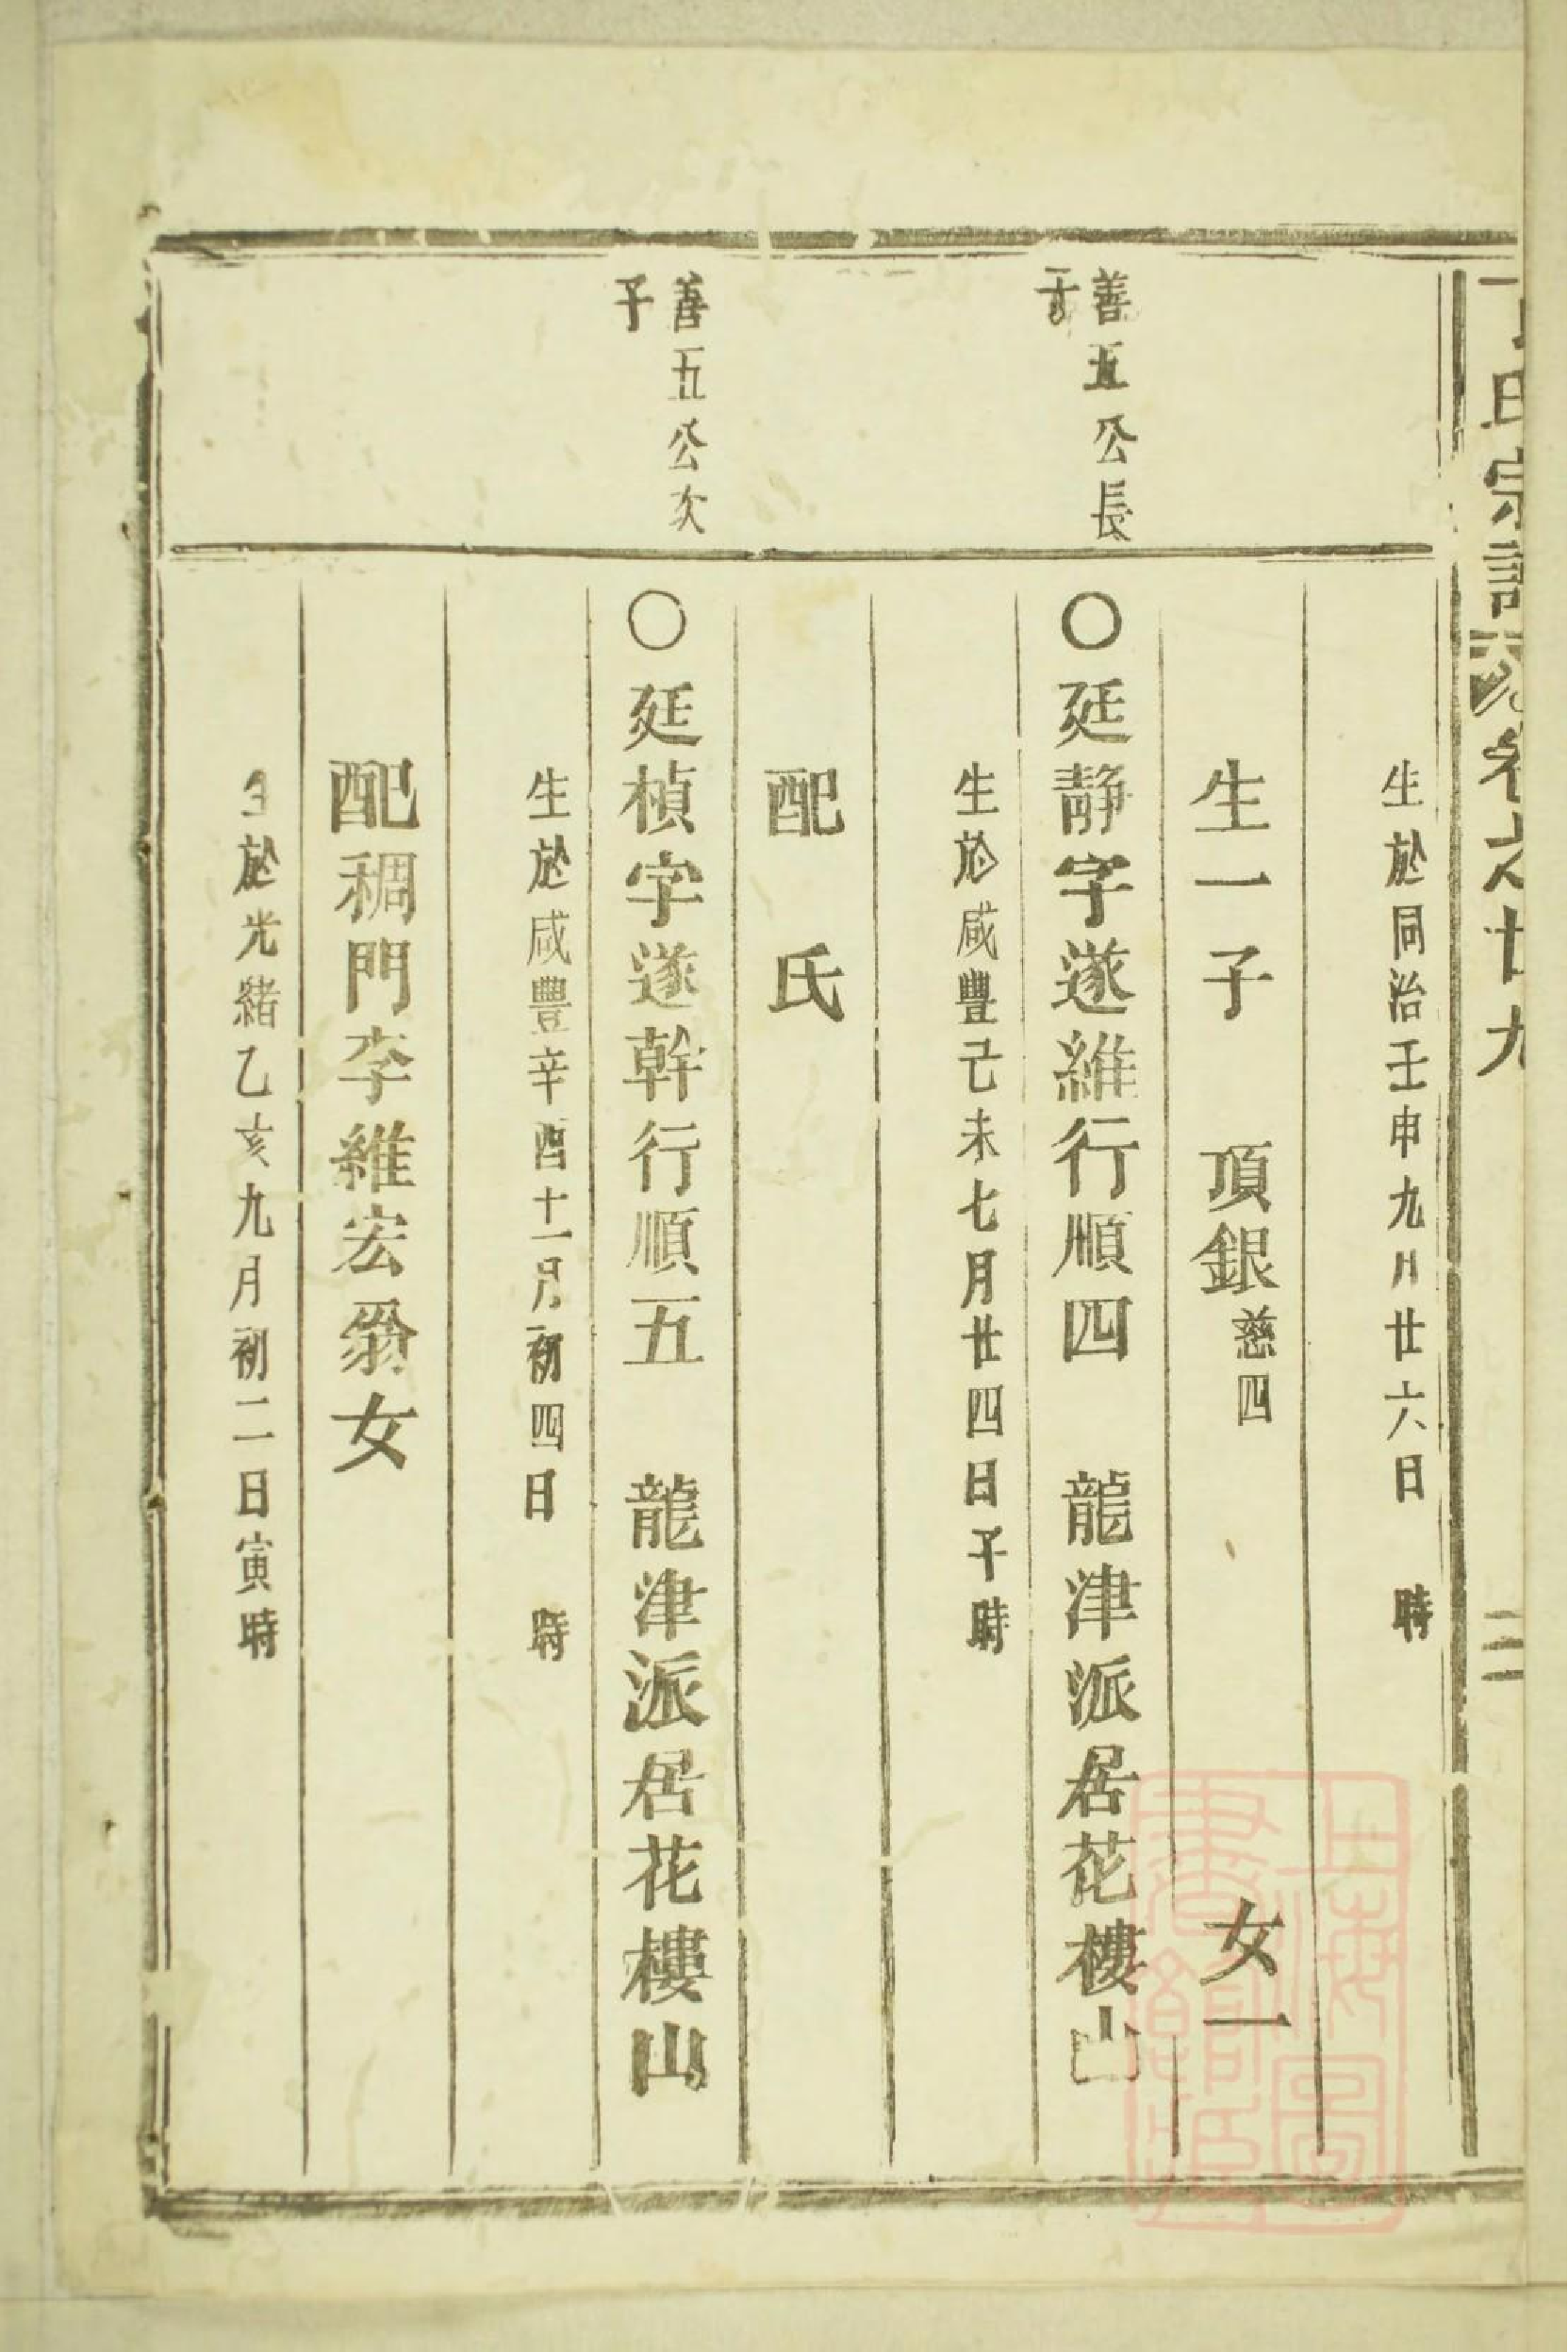 氏宗譜
卷之廿九
二
生於同治壬申九月廿六日 時
生一子 頂銀慈四 女一
善五公長
子
○廷靜字遂維行順四 龍津派居花樓山
生於咸豐己未七月廿四日子時
配 氏
善五公次
子
○廷楨字遂幹行順五 龍津派居花樓山
生於咸豐辛酉十一月初四日 時
配稠門李維宏翁女
生於光緒乙亥九月初二日寅時
上海圖
書館藏